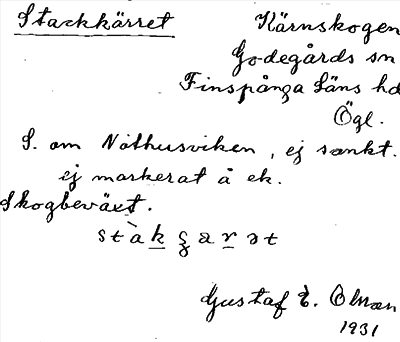 Stackkärret
Kärnskogen
Godegårds sn
Finspånga läns hd
Ögl.
S. om Nöthusviken, ej sankt.
ej markerat å ek.
Skogbeväxt.
Gustaf E. Olman
1931